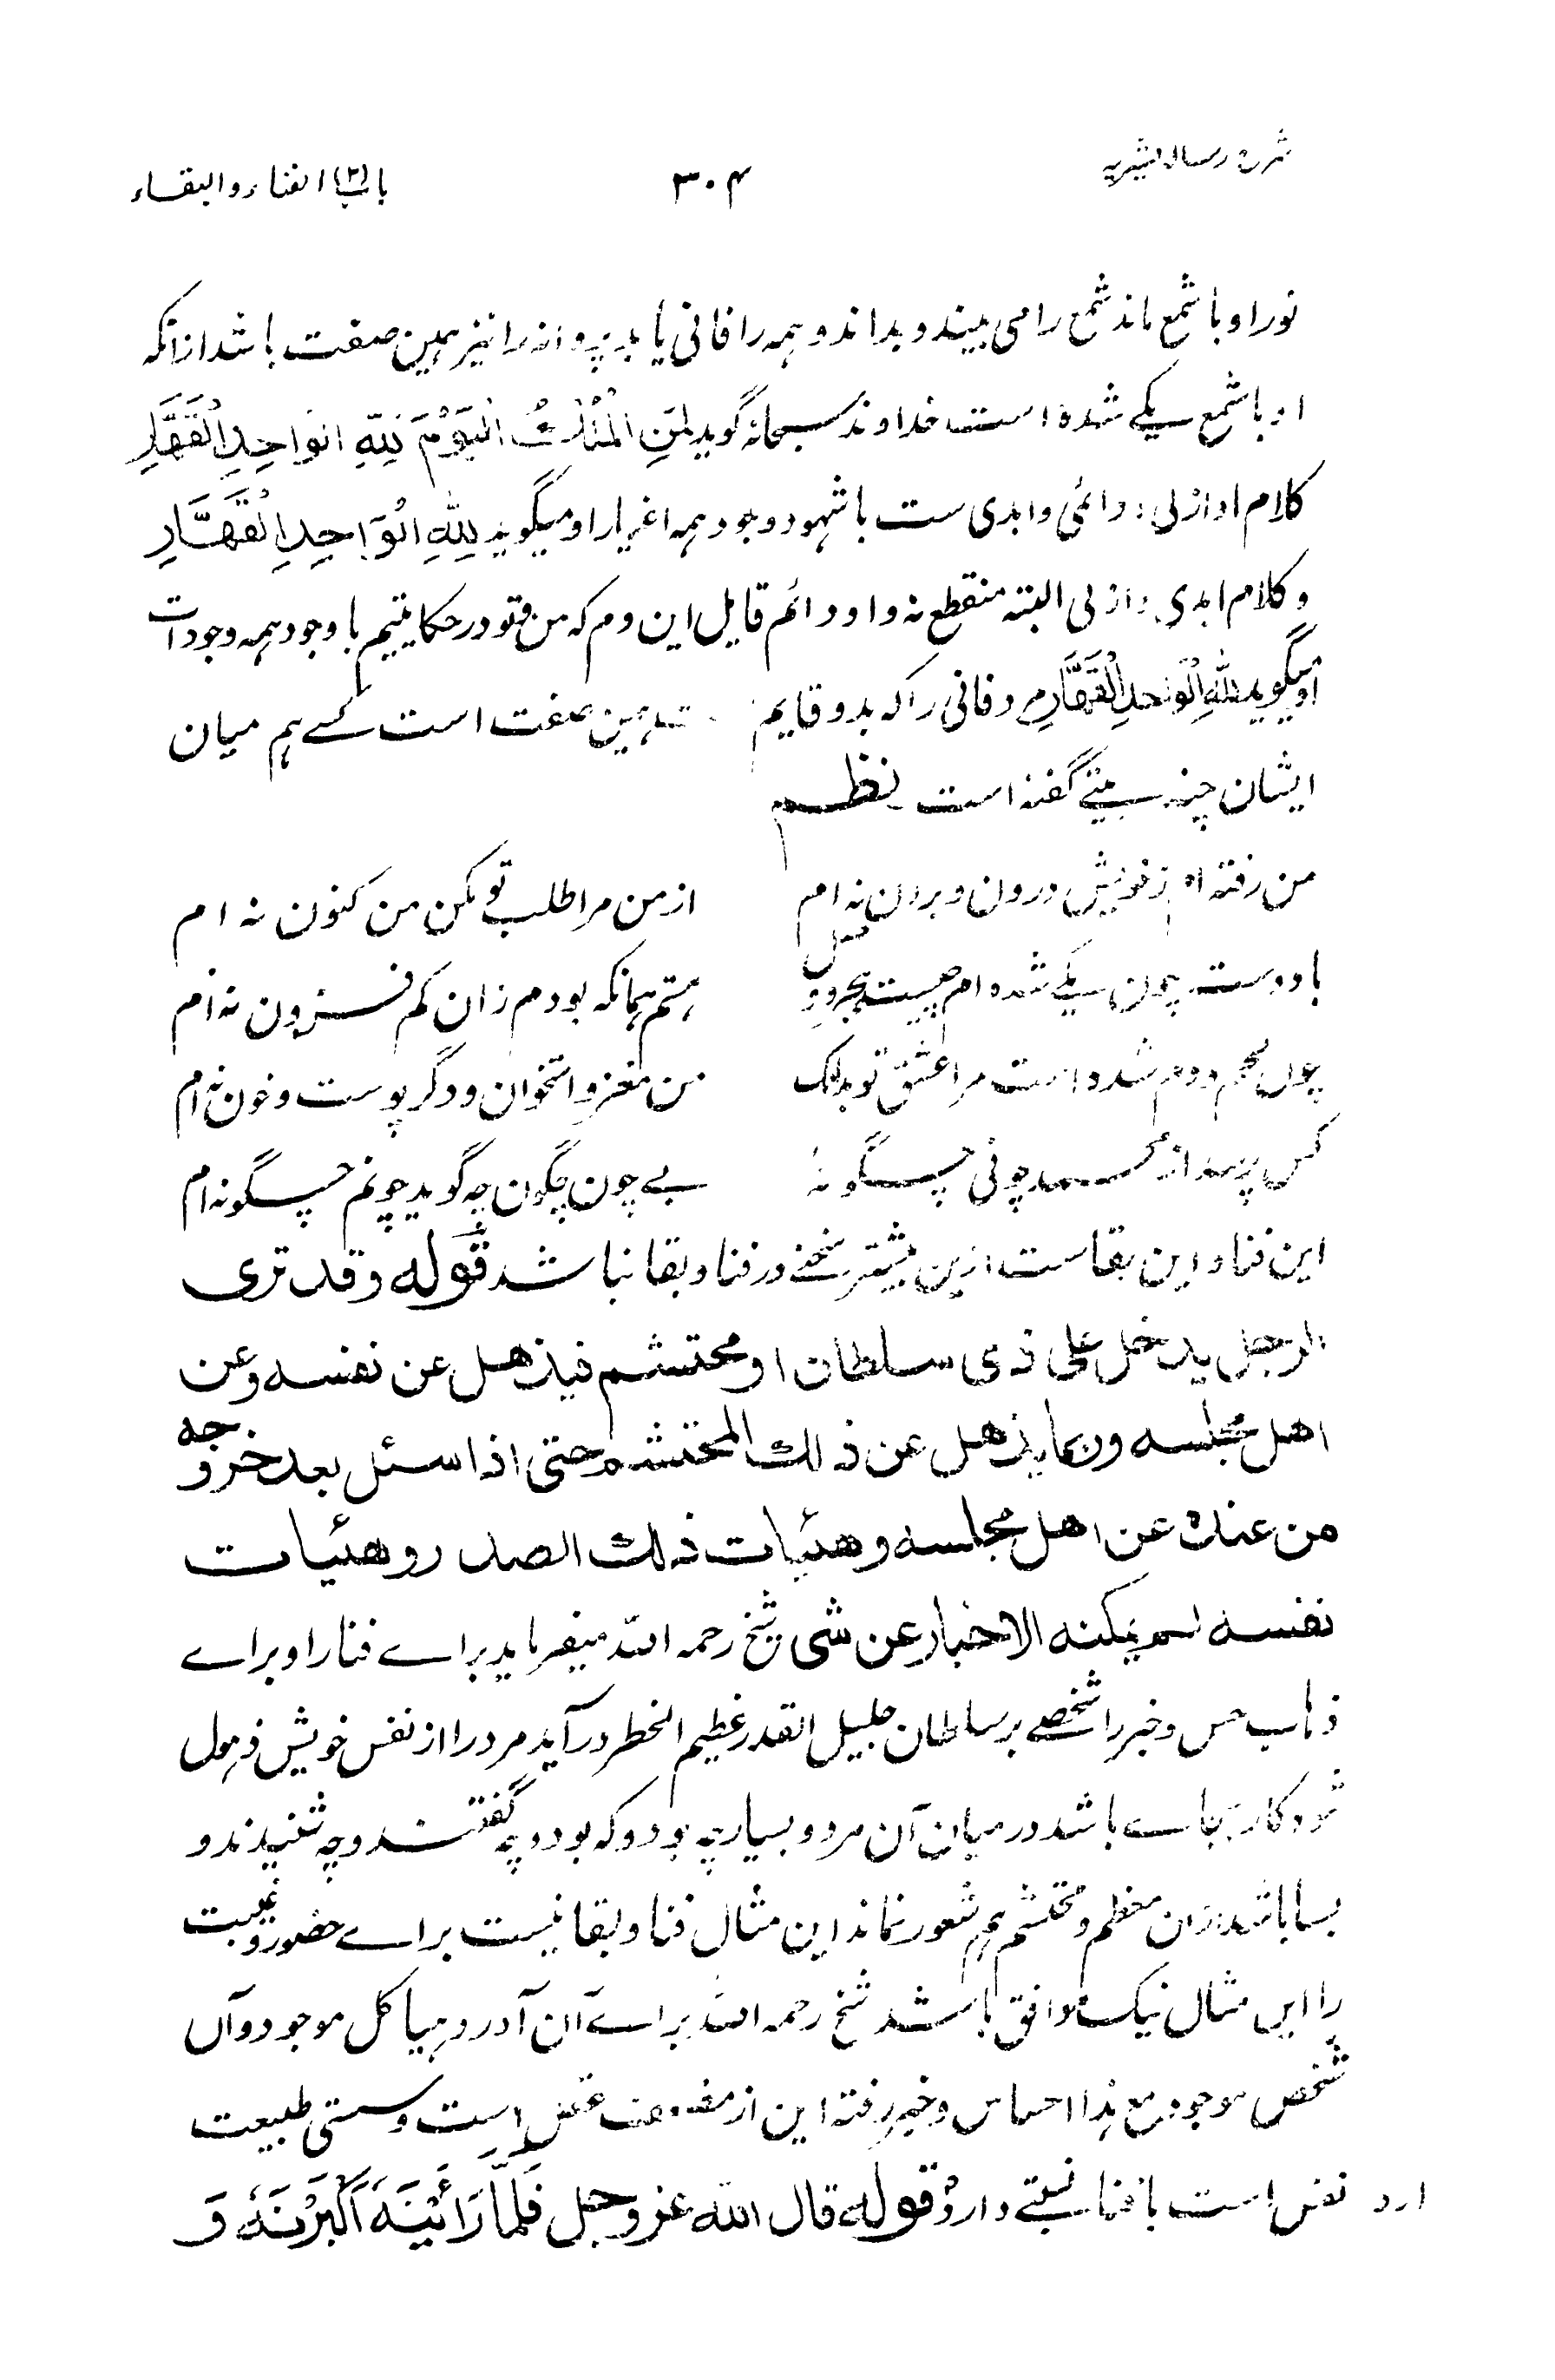 شرح رساله قشیریه
۳۰۴
باب (۳) الفناء والبقاء
نور او با شمع ماند شمع را می بیند و بداند و همه را فانی یابد پروانه را نیز همین صفت باشد ازانکه
او با شمع یکے شده است خداوند سبحانه گوید لِمَنِ الْمُلْكُ الْیَوْمَ لِلّٰهِ الْوَاحِدِ الْقَهَّارِ
کلام او ازلی دائمی و ابدی ست با شهود وجود همه اغیار او میگوید لِلّٰهِ الْوَاحِدِ الْقَهَّارِ
و کلام ابدی و ازلی البته منقطع نه و او دائم قایل این و م که من و تو در حکایتیم با وجود همه وجودات
او میگوید لِلّٰهِ الْوَاحِدِ الْقَهَّارِ مرد فانی را که بدو قایم همین صفت است کسے هم میان
ایشان چند بیتے گفته است نظم
من رفته ام ز خویش درون و برون نه ام
از من مرا طلب تو مکن من کنون نه ام
با دوست چون یکے شده ام چیست
هستم همانکه بودم زان کم فزون نه ام
چون لحم و دم شده است مرا عشق تو
من مغز و استخوان و دگر پوست و خون نه ام
کس پرسد از محمد چونی چگونهٔ
بے چون چگون چه گوید چونم چگونه ام
این فنا و این بقاست ازین بیشتر سخنے در فنا و بقا نباشد قوله وقد تری
الرجل یدخل علی ذی سلطان او محتشم فیذهل عن نفسه وعن
اهل مجلسه وربما یذهل عن ذلك المحتشم حتی اذا سئل بعد خروجه
من عنده عن اهل مجلسه وهیئات ذلك الصدر وهیئات
نفسه لم یمکنه الاخبار عن شی شیخ رحمه الله میفرماید براے فنا را و براے
ذهاب حس و خبر را شخصے بر سلطان جلیل القدر عظیم الخطر درآید مرد را از نفس خویش ذهول
شود کار بجاے باشد در میان آن مرد و بسیار چه بود و که بود و چه گفتند و چه شنیدند و
بسا باشد ازان معظم و محتشم هم شعور نماند این مثال فنا و بقا نیست براے حضور و غیبت
را این مثال نیک موافق باشد شیخ رحمه الله براے آن آورد هیاکل موجود و آن
شخص موجود مع هذا احساس و خبر رفته این از ضعف عقل است و سستی طبیعت
نفس است با فنا نسبتے دارد قوله قال الله عز وجل فَلَمَّا رَاَیْنَهٗ اَکْبَرْنَهٗ وَ